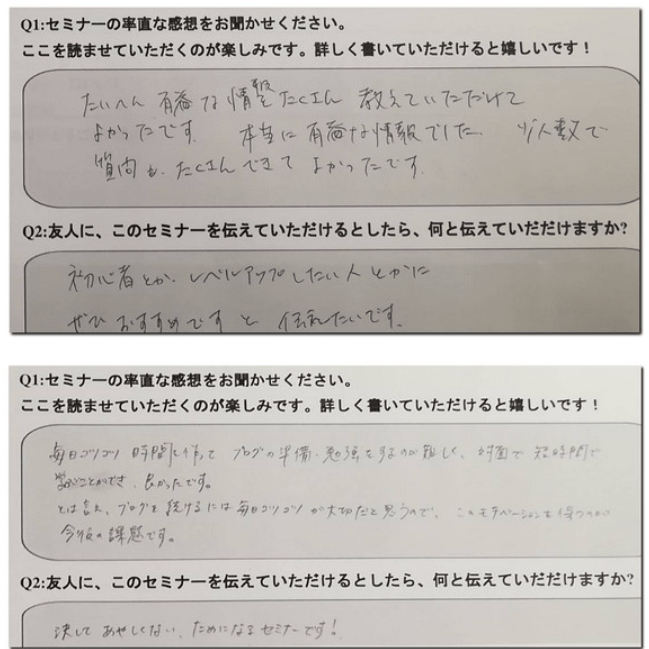 Q1:セミナーの率直な感想をお聞かせください。
ここを読ませていただくのが楽しみです。詳しく書いていただけると嬉しいです！
たいへん 有益な情報 たくさん 教えていただけて
よかったです。 本当に有益な情報でした。 少人数で
質問も、たくさんできて よかったです。
Q2:友人に、このセミナーを伝えていただけるとしたら、何と伝えていだだけますか?
初心者とか、レベルアップしたい人とかに
ぜひ おすすめですと 伝えたいです。
Q1:セミナーの率直な感想をお聞かせください。
ここを読ませていただくのが楽しみです。詳しく書いていただけると嬉しいです！
毎日コツコツ 時間を作って ブログの準備・勉強をするのが難しく、対面で 短時間で
学ぶことができ、良かったです。
とは言え、ブログを続けるには毎日コツコツが大切だと思うので、このモチベーションを保つのが
今後の課題です。
Q2:友人に、このセミナーを伝えていただけるとしたら、何と伝えていだだけますか?
決して あやしくない、ためになるセミナーです！